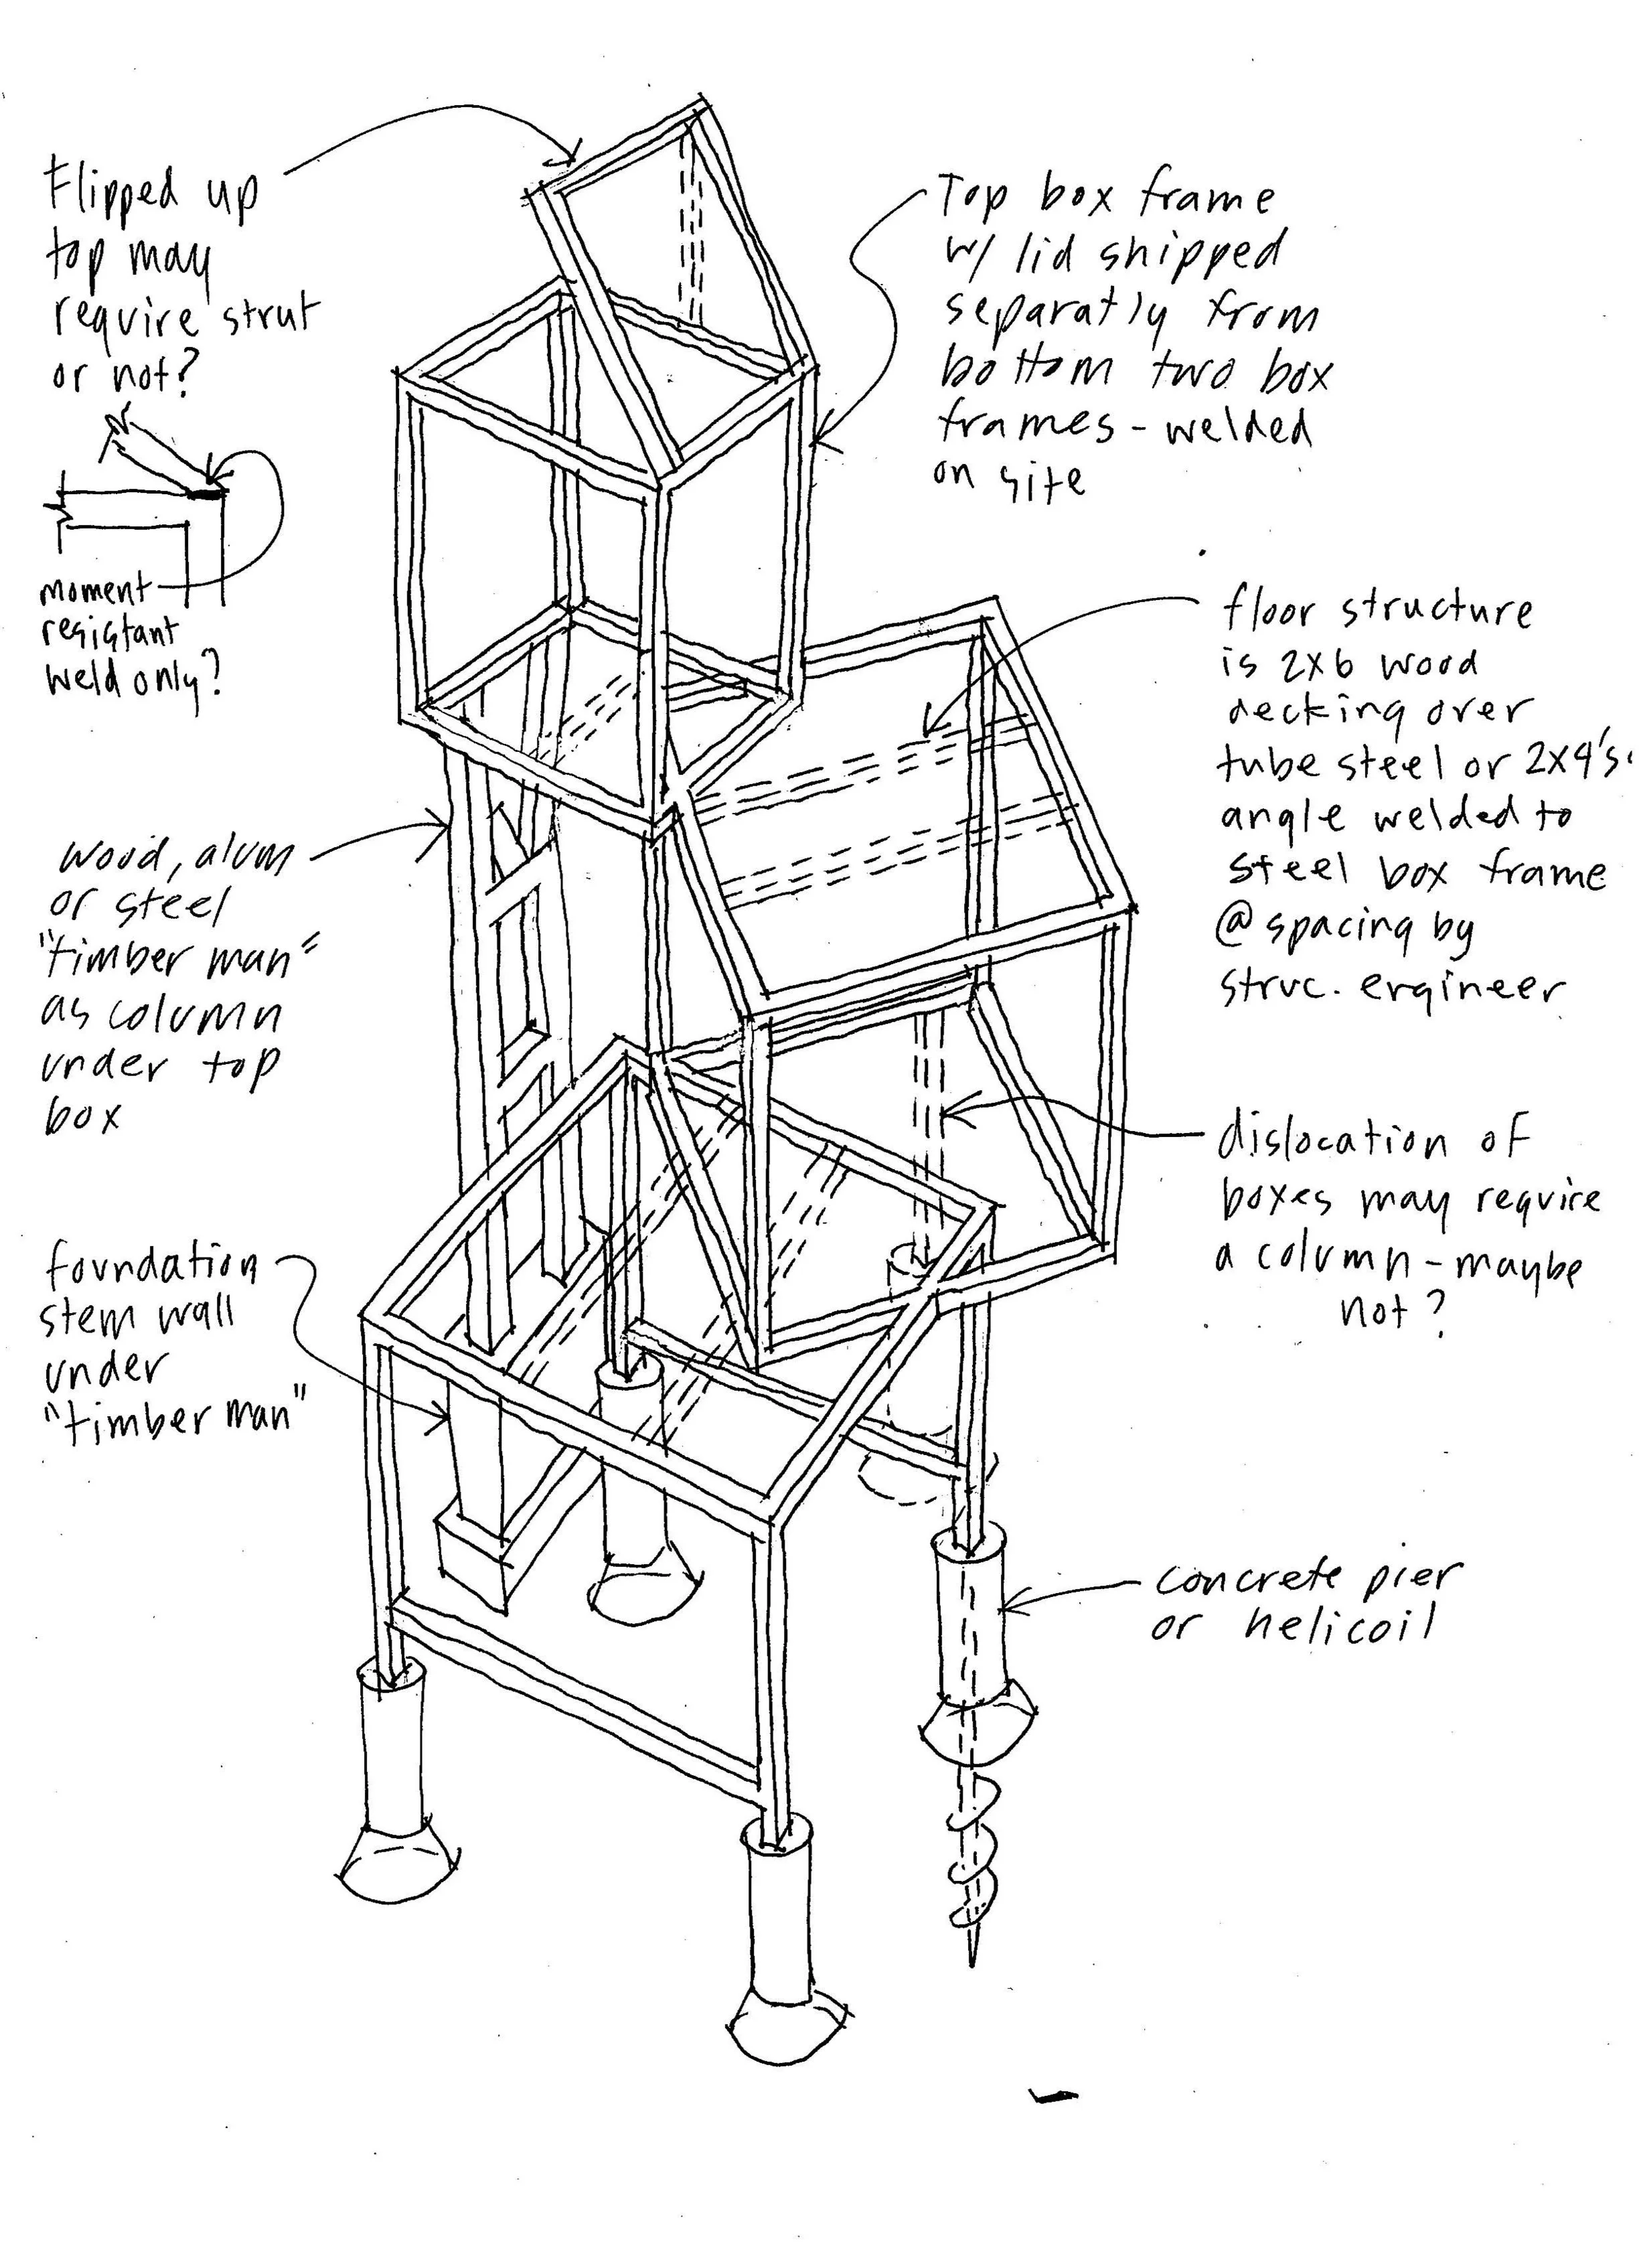 Flipped up
top may
require strut
or not?
moment
resistant
weld only?
Top box frame
w/ lid shipped
separatly from
bottom two box
frames - welded
on site
floor structure
is 2x6 wood
decking over
tube steel or 2x4's.
angle welded to
steel box frame
@ spacing by
struc. engineer
wood, alum
or steel
"timber man"
as column
under top
box
dislocation of
boxes may require
a column - maybe
not?
foundation
stem wall
under
"timber man"
concrete pier
or helicoil